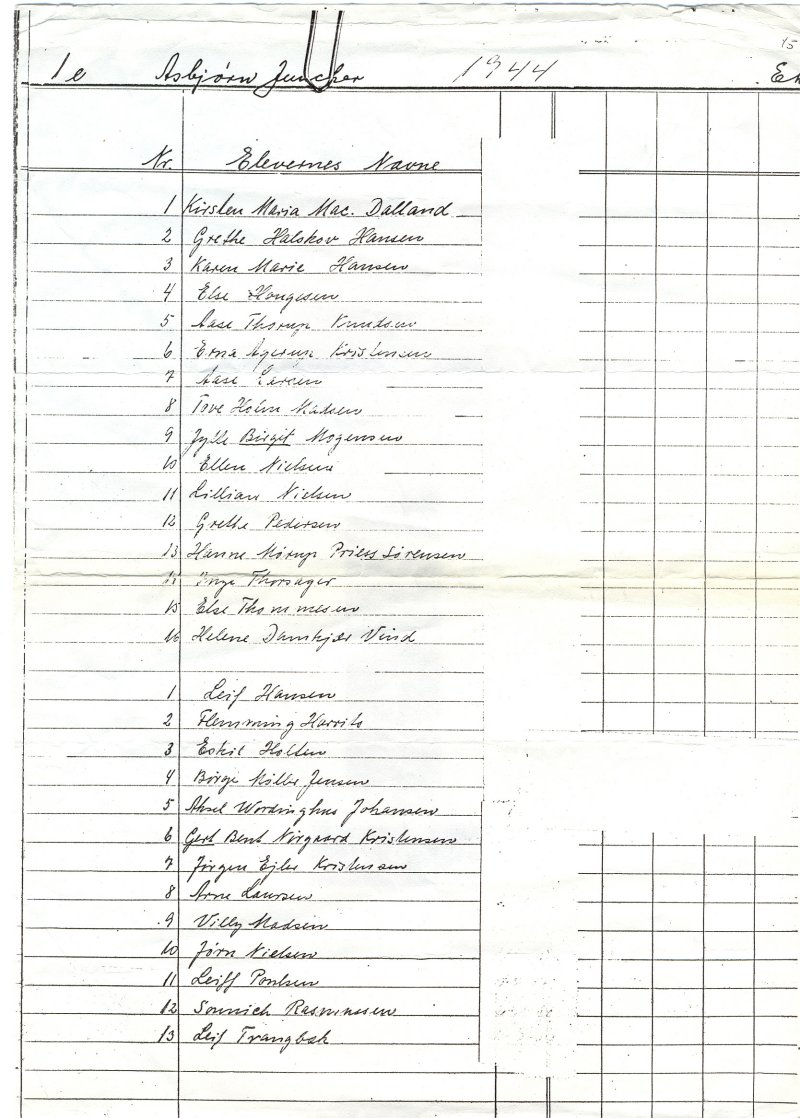 15
1e Asbjørn Juncker 1944
Nr. Elevernes Navne
1 Kirsten Maria Mac. Dalland
2 Grethe Halskov Hansen
3 Karen Marie Hansen
4 Else
5 Aase Thorup Knudsen
6 Erna Agerup Kristensen
7 Aase Larsen
8 Tove Holm Madsen
9 Jytte Birgit Mogensen
10 Ellen Nielsen
11 Lillian Nielsen
12 Grethe Pedersen
13 Hanne Mørup Priess Sørensen
14 Inge Thorsager
15 Else Thommesen
16 Helene Damkjær Vind
1 Leif Hansen
2 Flemming Harrits
3 Eskil Holten
4 Børge Møller Jensen
5 Aksel Johansen
6 Gert Bent Nørgaard Kristensen
7 Jørgen Ejler Kristensen
8 Arne Laursen
9 Villy Madsen
10 Jørn Nielsen
11 Leiff Poulsen
12 Sonnich Rasmussen
13 Leif Trangbæk